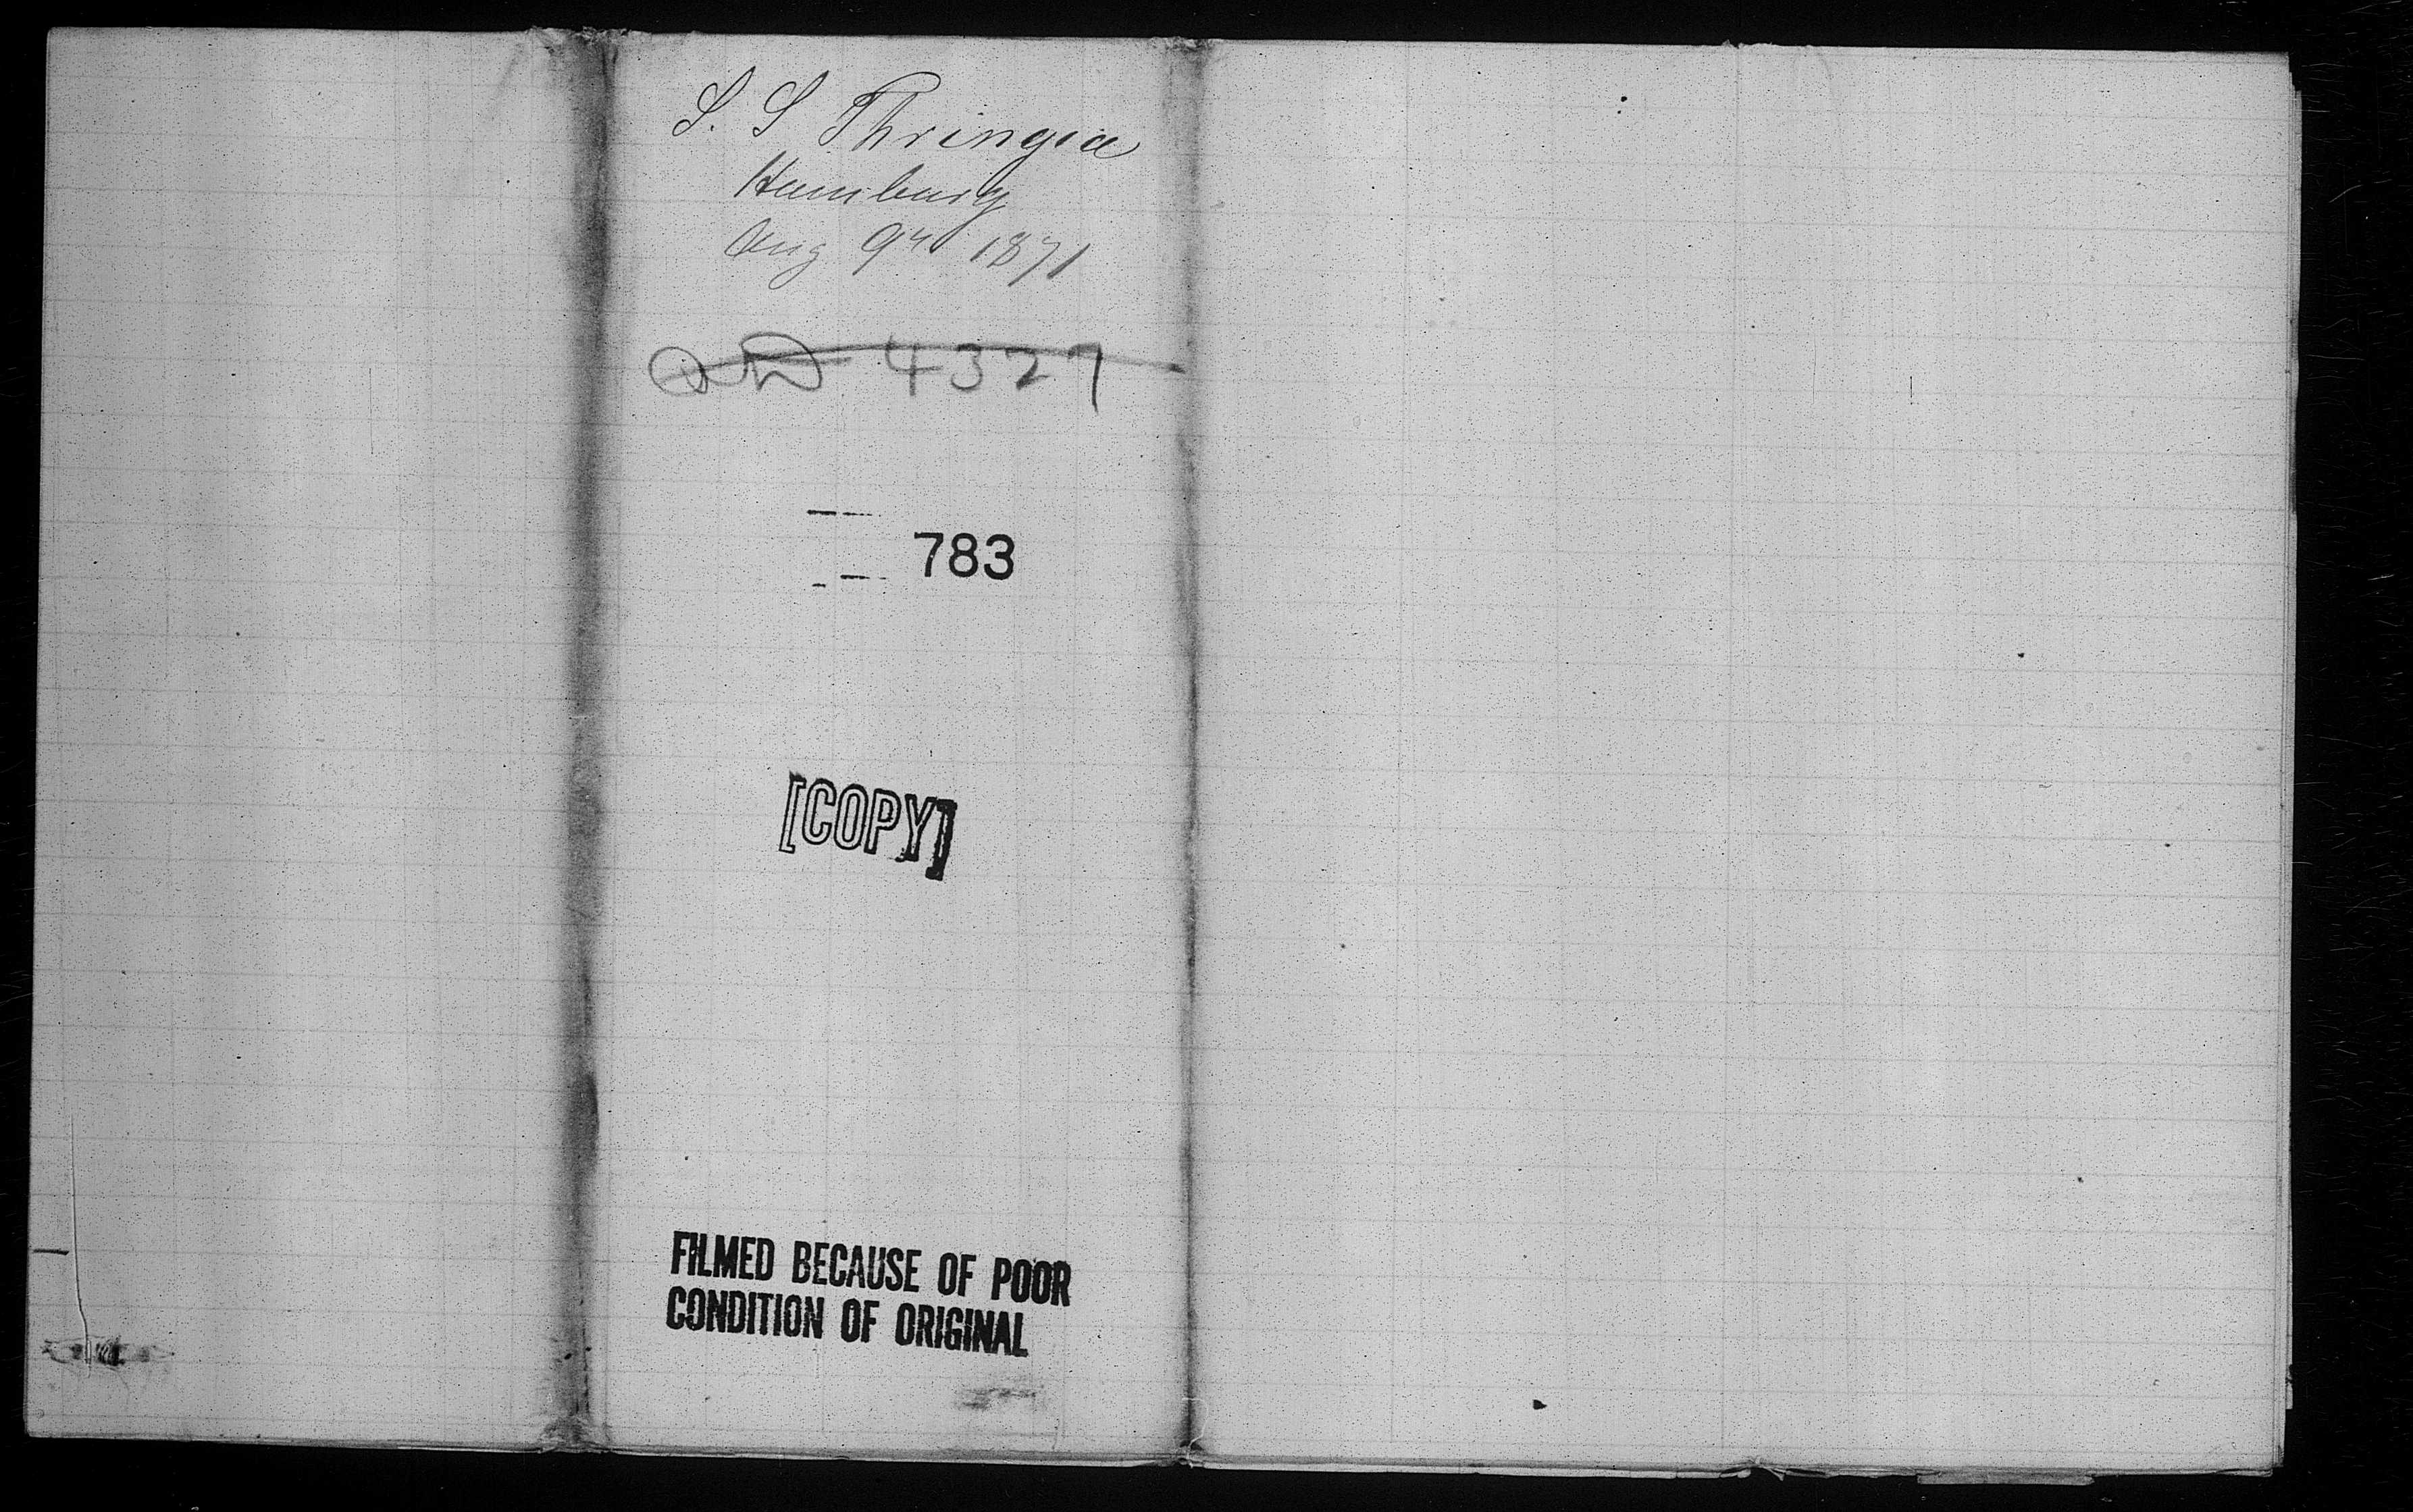 S. S Thringia
Hamburg
Aug 9th 1871
4327
783
[COPY]
FILMED BECAUSE OF POOR
CONDITION OF ORIGINAL